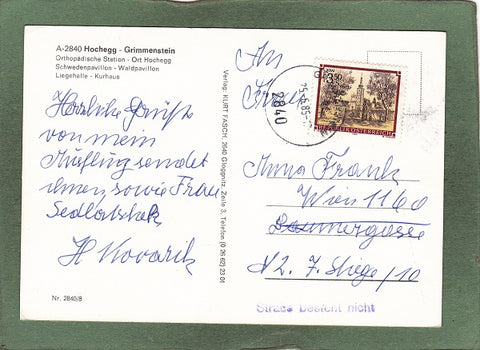 A-2840 Hochegg - Grimmenstein
Orthopädische Station - Ort Hochegg
Schwedenpavillon - Waldpavillon
Liegehalle - Kurhaus
Herzliche Grüße
von mein
Ausflug sendet
ihnen, sowie Frau
Sedlatschek
H Kovarik
Nr. 2840/8
Verlag: KURT FASCH, 2640 Gloggnitz, Zeile 3, Telefon (0 26 62) 23 01
An
Frau
3.50
REPUBLIK ÖSTERREICH
2840
Anna Frank
Wien 1160
Baumergasse
N2. 7. Stiege /10
Straße besteht nicht